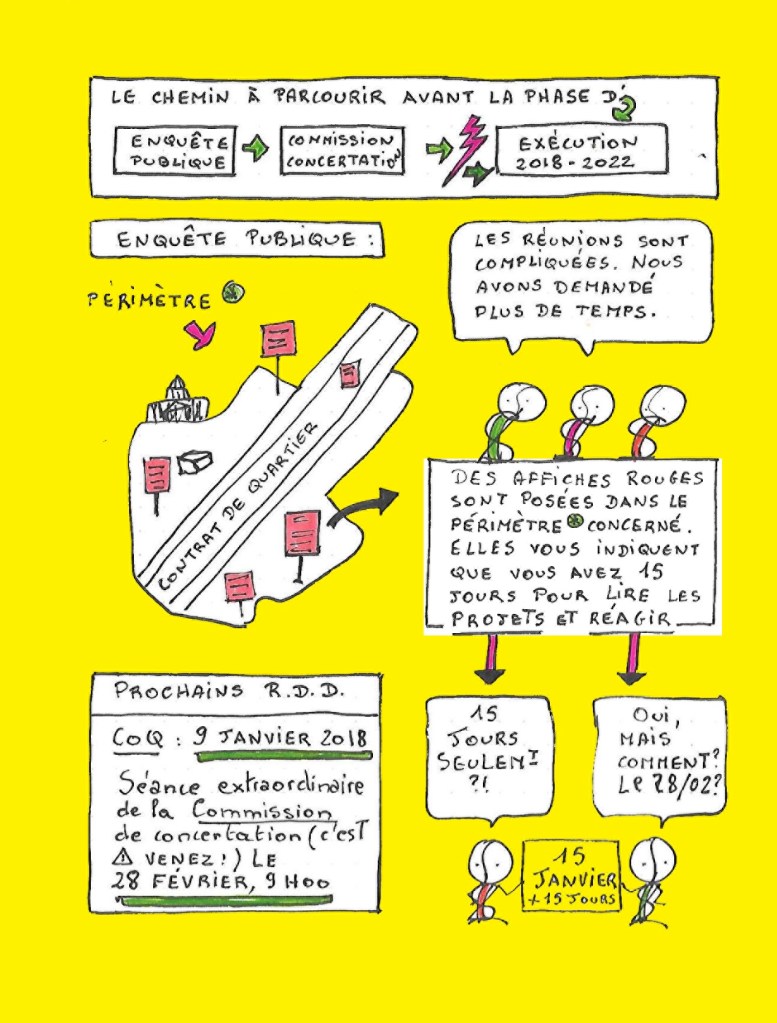 LE CHEMIN À PARCOURIR AVANT LA PHASE D'
ENQUÊTE
PUBLIQUE
COMMISSION
CONCERTATION
EXÉCUTION
2018-2022
ENQUÊTE PUBLIQUE :
PÉRIMÈTRE
CONTRAT DE QUARTIER
LES RÉUNIONS SONT
COMPLIQUÉES. NOUS
AVONS DEMANDÉ
PLUS DE TEMPS.
DES AFFICHES ROUGES
SONT POSÉES DANS LE
PÉRIMÈTRE CONCERNÉ.
ELLES VOUS INDIQUENT
QUE VOUS AVEZ 15
JOURS POUR LIRE LES
PROJETS ET RÉAGIR
PROCHAINS R.D.D.
COQ : 9 JANVIER 2018
Séance extraordinaire
de la Commission
de concertation (c'est
⚠ VENEZ!) LE
28 FÉVRIER, 9H00
15
JOURS
SEULEMT
?!
OUI,
MAIS
COMMENT?
LE 28/02?
15
JANVIER
+ 15 JOURS